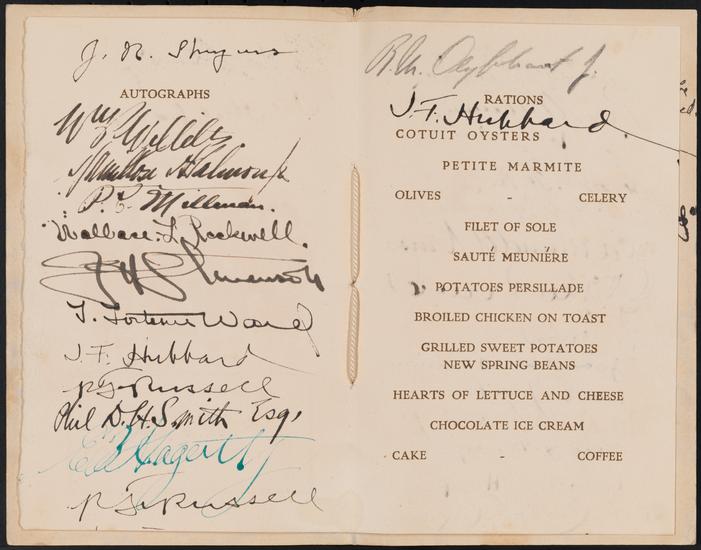 J. R.
AUTOGRAPHS
P. L. Millman.
Wallace L. Rockwell.
T. Fortune Ward
J. F. Hubbard
P. G. Russell
Phil D. H. Smith Esq.
P. G. Russell
R. M.
RATIONS
J. F. Hubbard
COTUIT OYSTERS
PETITE MARMITE
OLIVES - CELERY
FILET OF SOLE
SAUTÉ MEUNIÈRE
POTATOES PERSILLADE
BROILED CHICKEN ON TOAST
GRILLED SWEET POTATOES
NEW SPRING BEANS
HEARTS OF LETTUCE AND CHEESE
CHOCOLATE ICE CREAM
CAKE - COFFEE